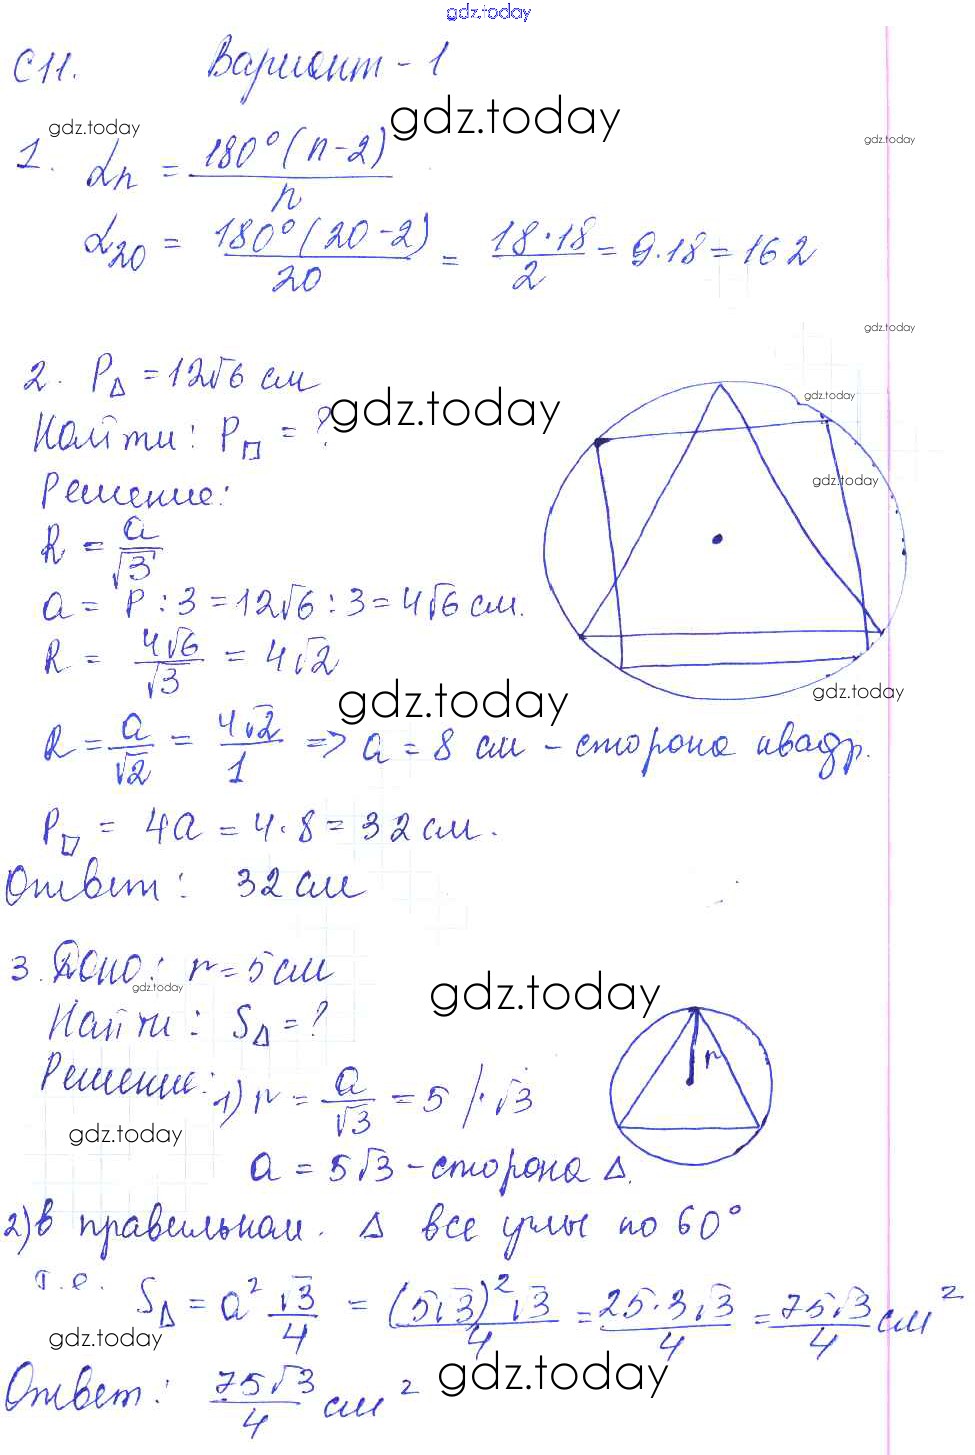 gdz.today
С11. Вариант - 1
gdz.today gdz.today gdz.today
1. αn = 180°(n-2)/n
α20 = 180°(20-2)/20 = 18·18/2 = 9·18 = 162
gdz.today
2. P△ = 12√6 см
gdz.today gdz.today
Найти: P□ = ?
gdz.today
Решение:
R = a/√3
a = P : 3 = 12√6 : 3 = 4√6 см.
R = 4√6/√3 = 4√2
gdz.today gdz.today
R = a/√2 = 4√2/1 => a = 8 см - сторона квадр.
P□ = 4a = 4·8 = 32 см.
Ответ: 32 см
3. Дано: r = 5 см
gdz.today gdz.today
Найти: S△ = ?
r
Решение: 1) r = a/√3 = 5 /·√3
gdz.today
a = 5√3 - сторона △.
2) в правильном. △ все углы по 60°
т.е. S△ = a² √3/4 = (5√3)²√3/4 = 25·3√3/4 = 75√3/4 см²
gdz.today gdz.today
Ответ: 75√3/4 см²